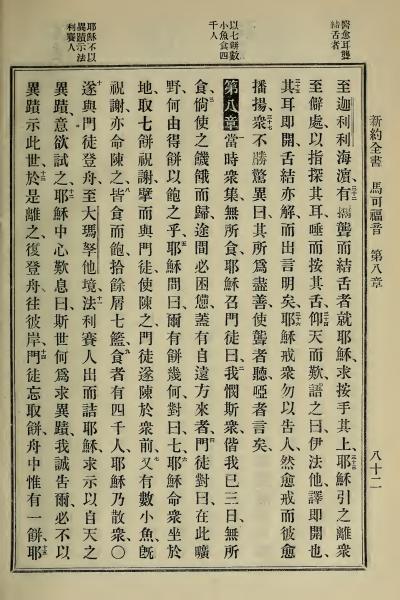 新約全書 馬可福音 第八章 八十二
醫愈耳聾
結舌者
以七餅數
小魚食四
千人
耶穌不以
異蹟示法
利賽人
至迦利利海濱、有攜聾而結舌者就耶穌、求按手其上、耶穌引之離衆
至僻處以指探其耳、唾而按其舌、仰天而歎、語之曰、伊法他、譯即開也、
其耳即開、舌結亦解、而出言明矣、耶穌戒衆勿以告人、然愈戒而彼愈
播揚、衆不勝驚異曰、其所爲盡善、使聾者聽、啞者言矣、
第八章 當時衆集、無所食、耶穌召門徒曰、我憫斯衆、偕我已三日、無所
食、倘使之饑餓而歸、途間必困憊、蓋有自遠方來者、門徒對曰、在此曠
野、何由得餅以飽之乎、耶穌問曰、爾有餅幾何、對曰七、耶穌命衆坐於
地、取七餅祝謝、擘而與門徒使陳之、門徒遂陳於衆前、又有數小魚、旣
祝謝、亦命陳之、皆食而飽、拾餘屑七籃、食者有四千人、耶穌乃散衆○
遂與門徒登舟、至大瑪拏他境、法利賽人出而詰耶穌、求示以自天之
異蹟、意欲試之、耶穌中心歎息曰、斯世何爲求異蹟、我誠告爾、必不以
異蹟示此世、於是離之、復登舟往彼岸、門徒忘取餅、舟中惟有一餅、耶